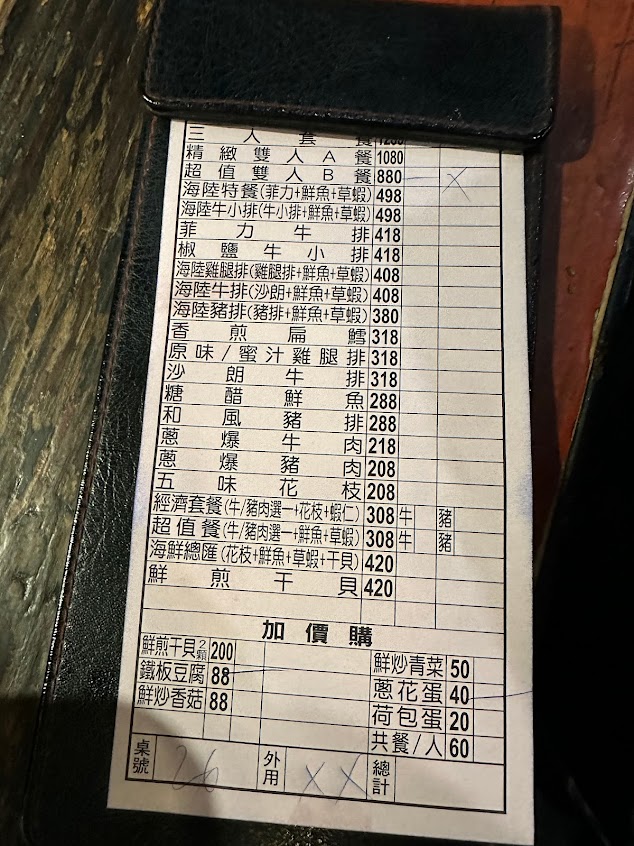 三人套餐
精緻雙人A餐 1080
超值雙人B餐 880 — X
海陸特餐(菲力+鮮魚+草蝦) 498
海陸牛小排(牛小排+鮮魚+草蝦) 498
菲力牛排 418
椒鹽牛小排 418
海陸雞腿排(雞腿排+鮮魚+草蝦) 408
海陸牛排(沙朗+鮮魚+草蝦) 408
海陸豬排(豬排+鮮魚+草蝦) 380
香煎扁鱈 318
原味/蜜汁雞腿排 318
沙朗牛排 318
糖醋鮮魚 288
和風豬排 288
蔥爆牛肉 218
蔥爆豬肉 208
五味花枝 208
經濟套餐(牛/豬肉選一+花枝+蝦仁) 308 牛 豬
超值餐(牛/豬肉選一+鮮魚+草蝦) 308 牛 豬
海鮮總匯(花枝+鮮魚+草蝦+干貝) 420
鮮煎干貝 420
加價購
鮮煎干貝2顆 200 鮮炒青菜 50
鐵板豆腐 88 蔥花蛋 40
鮮炒香菇 88 荷包蛋 20
共餐/人 60
桌號 26 外用 XX 總計